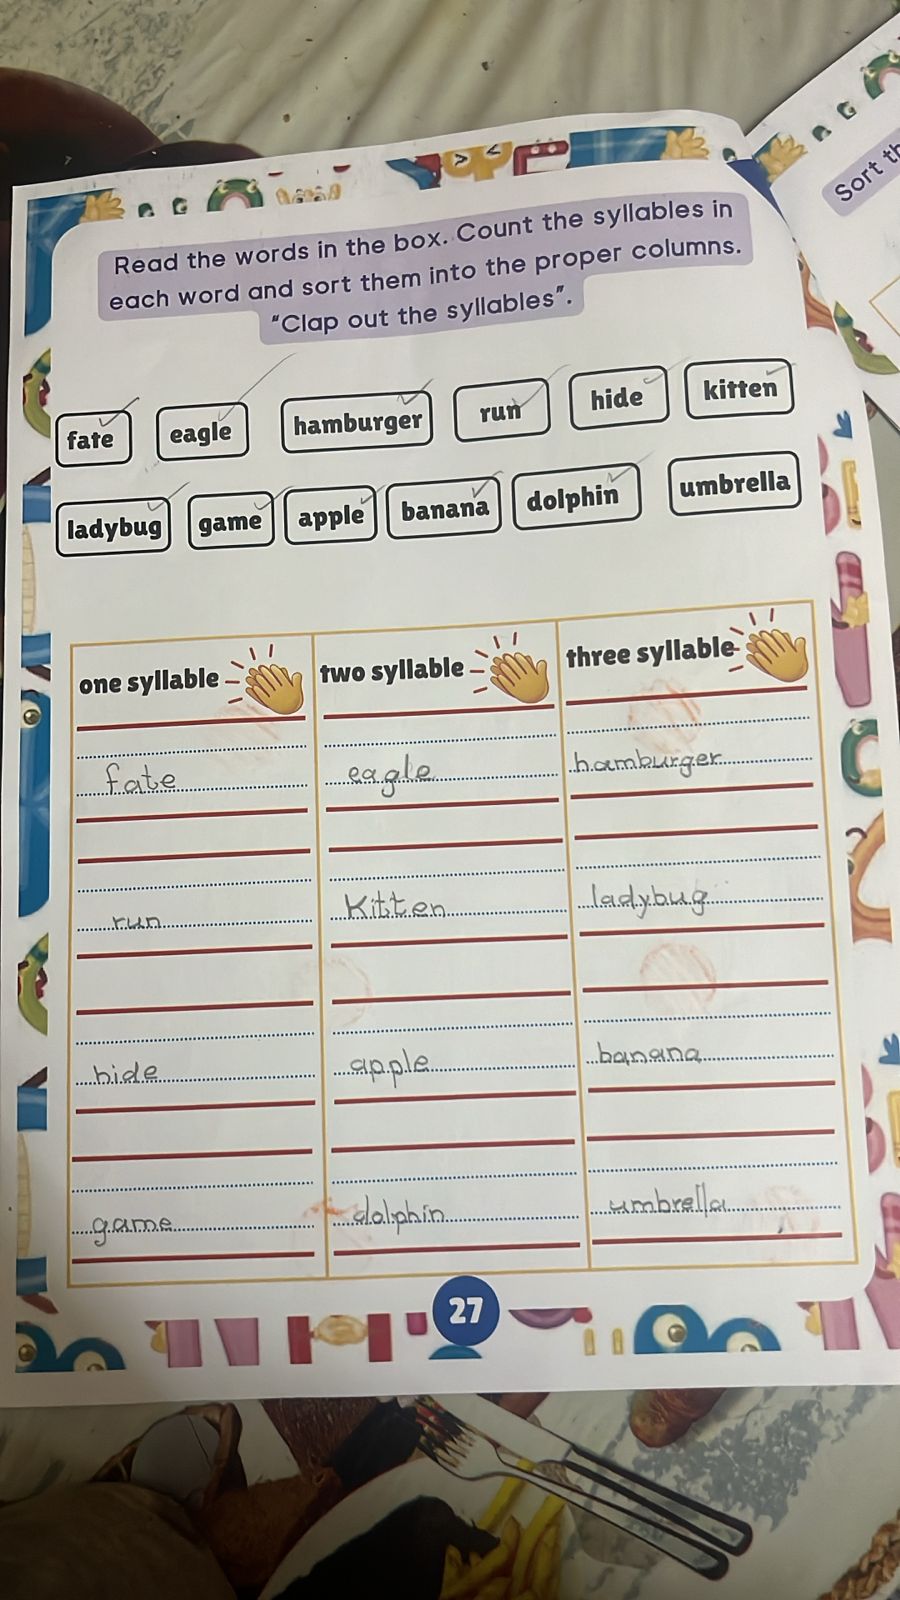 Read the words in the box. Count the syllables in
each word and sort them into the proper columns.
"Clap out the syllables".
Sort th
fate eagle hamburger run hide kitten
ladybug game apple banana dolphin umbrella
one syllable two syllable three syllable
fate eagle hamburger
run Kitten ladybug
hide apple banana
game dolphin umbrella
27